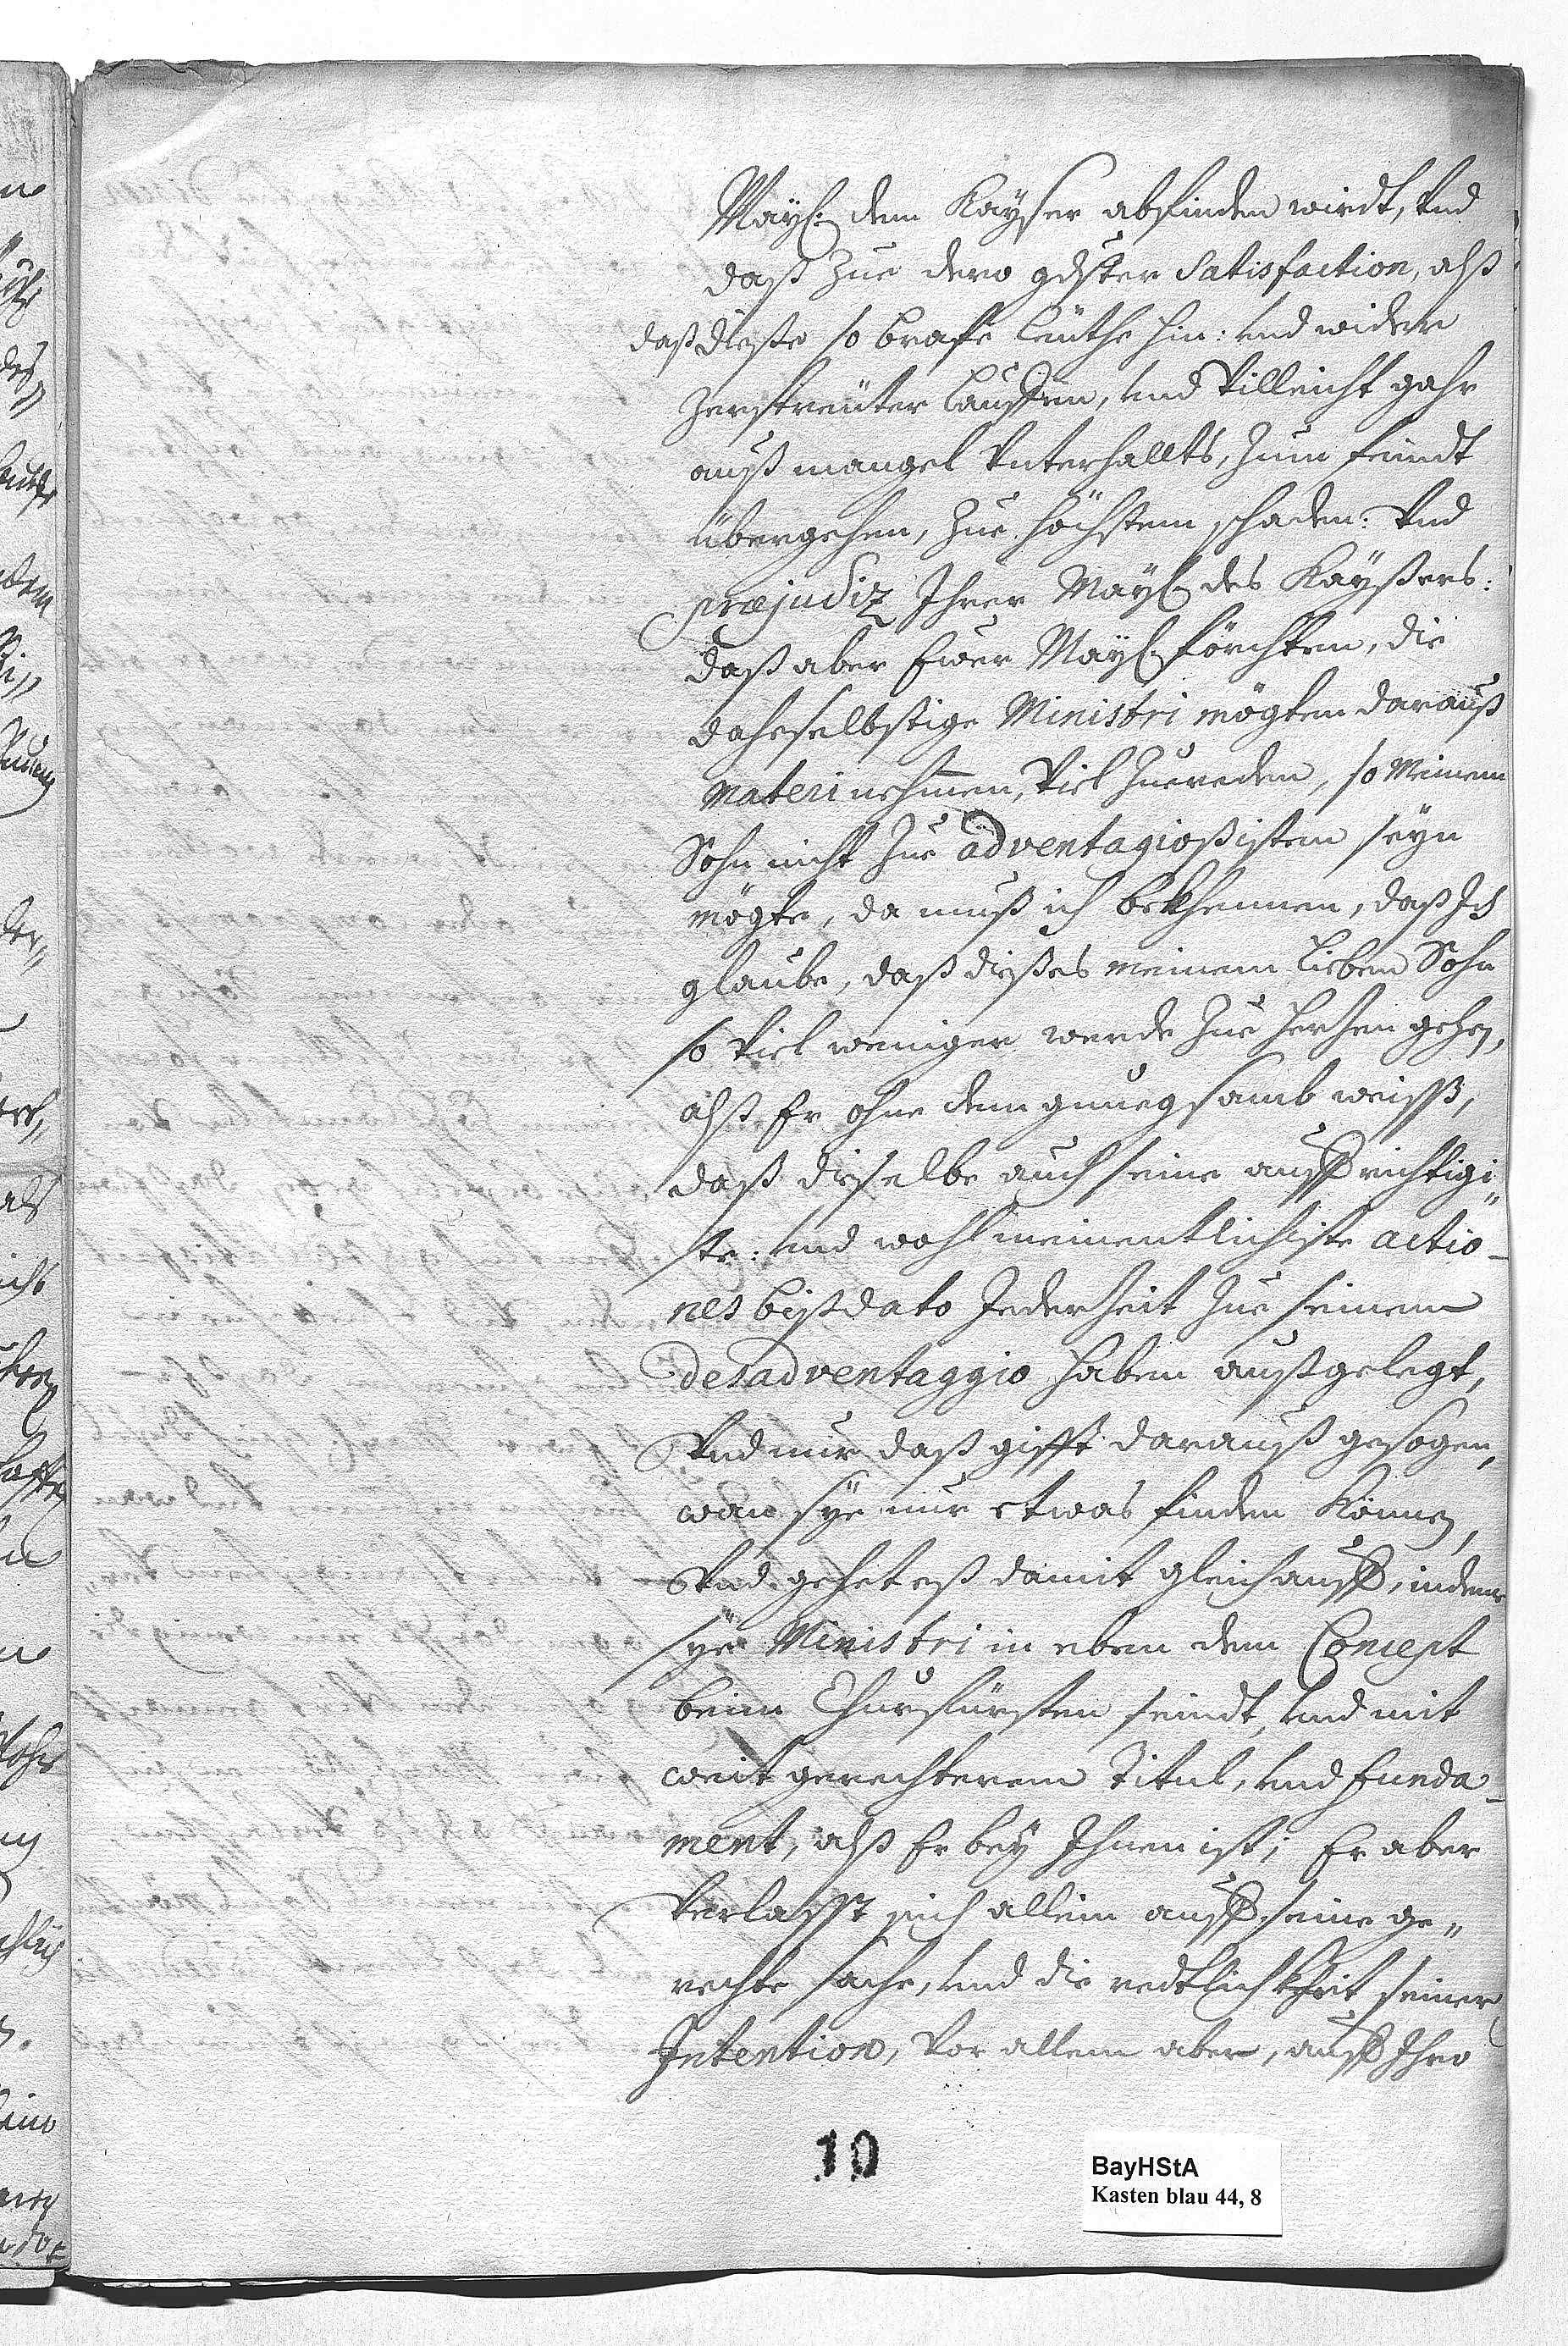 Mayt. dem Kayser abfinden wirdt, vnd
daß zue dero gdster Satisfaction, alß
daß dieße so brafe leüthe hin: vnd wider
zerstreüter lauffen, vnd villeicht gahr
auß mangel vnterhallts, zum feindt
übergehen, zue höchstem schaden: vnd
præjudiz Ihrer Mayt. des Kayßers:
daß aber Euer Mayt. förchten, die
daheselbstige Ministri mögten darauß
Materi nehmen, viel zuereden, so Meinem
Sohn nicht zue adventagioßisten seyn
mögte, da muß ich bekhennen, daß Ich
glaube, daß dießes meinem lieben Sohn
so viel weniger werde zue herzen gehen,
alß Er ohne dem gnuegsamb weiß,
daß dieselbe auch seine auffrichtigi„
ste: vnd wohlmeinentlichiste actio-
nes biß dato Jederzeit zue seinem
desadventaggio haben außgelegt,
vnd nur daß gifft darauß gesogen,
wan sye nur etwas finden können,
vnd gehet eß damit gleich auff, indeme
sye Ministri in eben dem Concept
beim Churfürsten seindt, vnd mit
weit gerechterem Titul, vnd funda-
ment, alß Er bey Ihnen ist; Er aber
verlasst sich allein auff seine ge„
rechte sache, vnd die redtlichkheit seiner
Intention, vor allem aber, auff Ihro
10
BayHStA
Kasten blau 44, 8